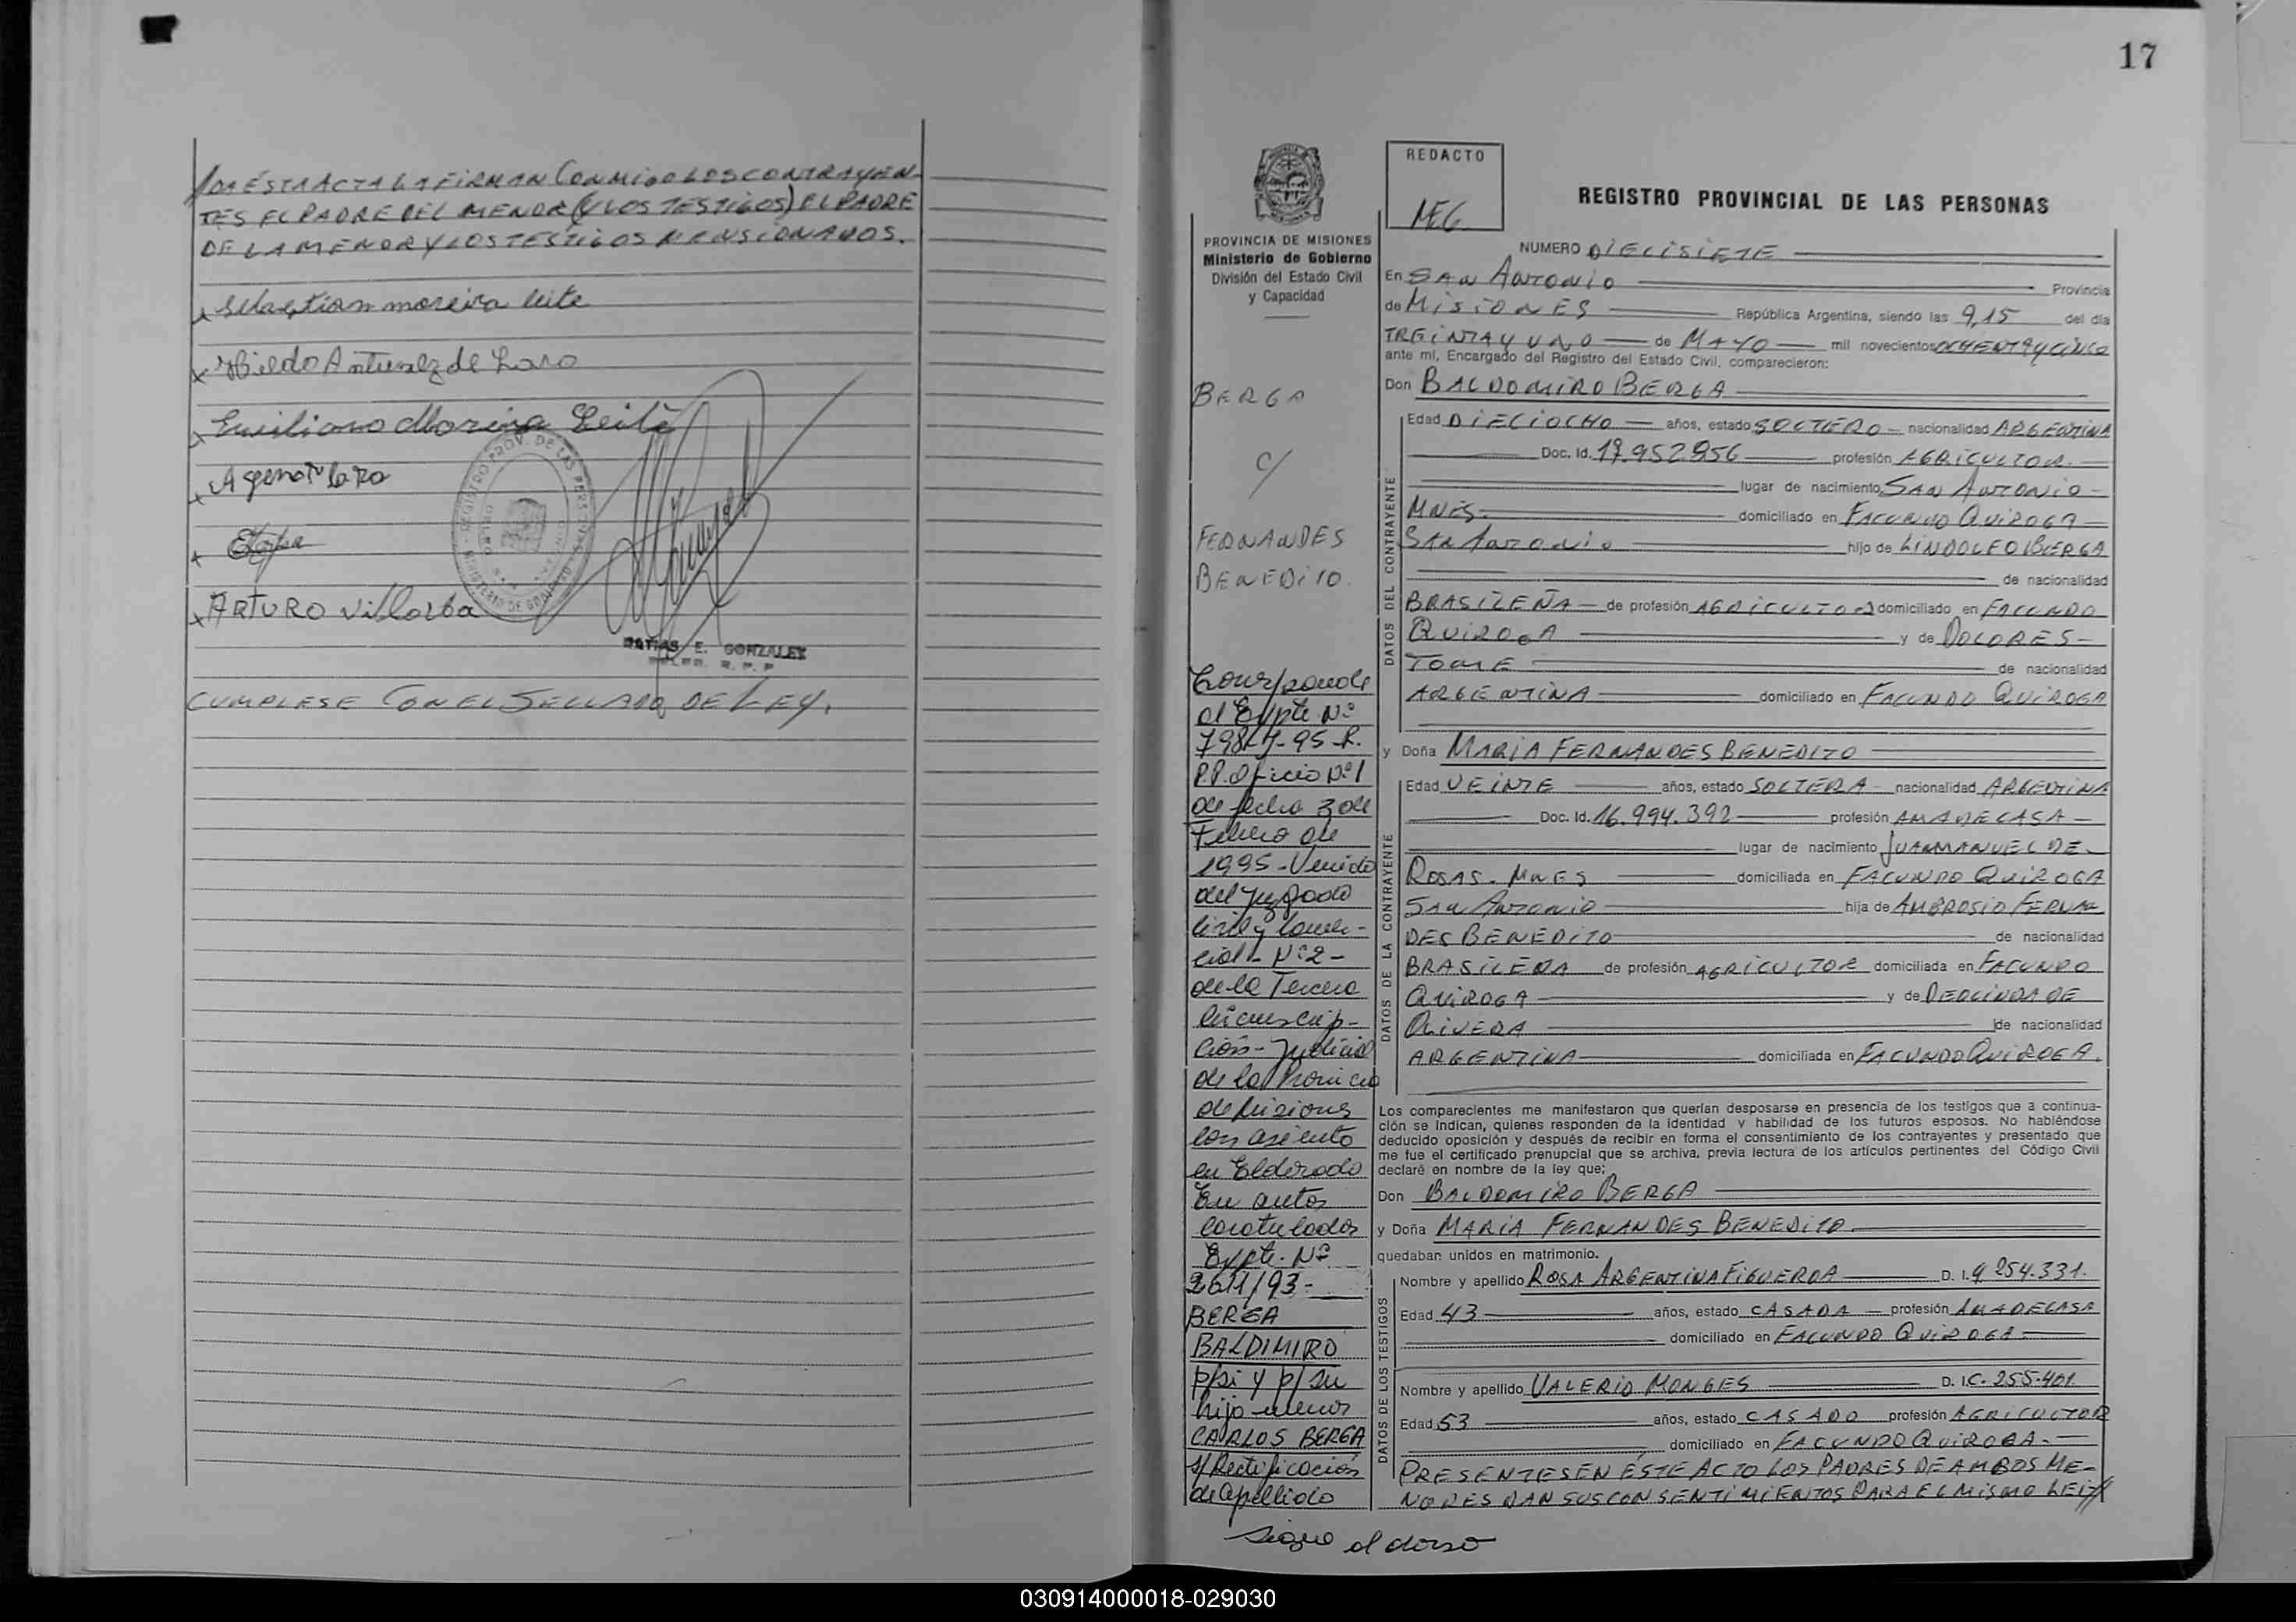 /DA ÉSTA ACTA LA FIRMAN CONMIGO LOS CONTRAYEN-
TES EL PADRE DEL MENOR (Y LOS TESTIGOS) EL PADRE
DE LA MENOR Y LOS TESTIGOS MENSIONADOS.
x Sebastian moreira leite
x Antunez de Lara
x Emiliano Moreira Leite
x Agenor Lara
x
x ARTURO Villalba
REGISTRO PROV. DE LAS PERSONAS
MINISTERIO DE GOBIERNO
MATIAS E. GONZALEZ
R. P. P
CUMPLESE CON EL SELLADO DE LEY.
17
PROVINCIA DE MISIONES
Ministerio de Gobierno
División del Estado Civil
y Capacidad
BERGA
c/
FERNANDES
BENEDITO.
Corresponde
al Expte Nº
798-95-R.
P.P. Oficio Nº 1
de fecha 3 de
Febrero de
1995 - Venido
del Juzgado
Civil y Comer-
cial - Nº 2 -
de la Tercera
Circunscrip-
ción - Judicial
de la Provincia
de Misiones
con asiento
en Eldorado
En autos
caratulados
Expte. Nº
2611/93 -
BERGA
BALDIMIRO
p/si y p/su
hijo menor
CARLOS BERGA
s/Rectificación
de apellido
Sigue al dorso
REDACTO
MEG
REGISTRO PROVINCIAL DE LAS PERSONAS
NUMERO DIECISIETE
En SAN ANTONIO Provincia
de MISIONES República Argentina, siendo las 9,15 del día
TREINTA Y UNO de MAYO mil novecientos OCHENTA Y CINCO
ante mí, Encargado del Registro del Estado Civil, comparecieron:
Don BALDOMIRO BERGA
DATOS DEL CONTRAYENTE
Edad DIECIOCHO años, estado SOLTERO nacionalidad ARGENTINA
Doc. Id. 17.952.856 profesión AGRICULTOR.
lugar de nacimiento SAN ANTONIO
MNES. domiciliado en FACUNDO QUIROGA
SAN ANTONIO hijo de LINDOLFO BERGA
de nacionalidad
BRASILEÑA de profesión AGRICULTOR domiciliado en FACUNDO
QUIROGA y de DOLORES
TOME de nacionalidad
ARGENTINA domiciliado en FACUNDO QUIROGA
y Doña MARIA FERNANDES BENEDITO
DATOS DE LA CONTRAYENTE
Edad VEINTE años, estado SOLTERA nacionalidad ARGENTINA
Doc. Id. 16.994.392 profesión AMA DE CASA
lugar de nacimiento JUAN MANUEL DE
ROSAS - MNES domiciliada en FACUNDO QUIROGA
SAN ANTONIO hija de AMBROSIO FERNAN
DES BENEDITO de nacionalidad
BRASILEÑA de profesión AGRICULTOR domiciliada en FACUNDO
QUIROGA y de DEOLINDA DE
OLIVERA de nacionalidad
ARGENTINA domiciliada en FACUNDO QUIROGA.
Los comparecientes me manifestaron que querían desposarse en presencia de los testigos que a continua-
ción se indican, quienes responden de la identidad y habilidad de los futuros esposos. No habiéndose
deducido oposición y después de recibir en forma el consentimiento de los contrayentes y presentado que
me fue el certificado prenupcial que se archiva, previa lectura de los artículos pertinentes del Código Civil
declaré en nombre de la ley que:
Don BALDOMIRO BERGA
y Doña MARIA FERNANDES BENEDITO.
quedaban unidos en matrimonio.
DATOS DE LOS TESTIGOS
Nombre y apellido ROSA ARGENTINA FIGUEROA D. I. 4.254.331.
Edad 43 años, estado CASADA profesión AMA DE CASA
domiciliado en FACUNDO QUIROGA
Nombre y apellido VALERIO MONGES D. I. C. 255.401
Edad 53 años, estado CASADO profesión AGRICULTOR
domiciliado en FACUNDO QUIROGA.
PRESENTES EN ÉSTE ACTO LOS PADRES DE AMBOS ME-
NORES DAN SUS CONSENTIMIENTOS PARA EL MISMO LEI//
030914000018-029030